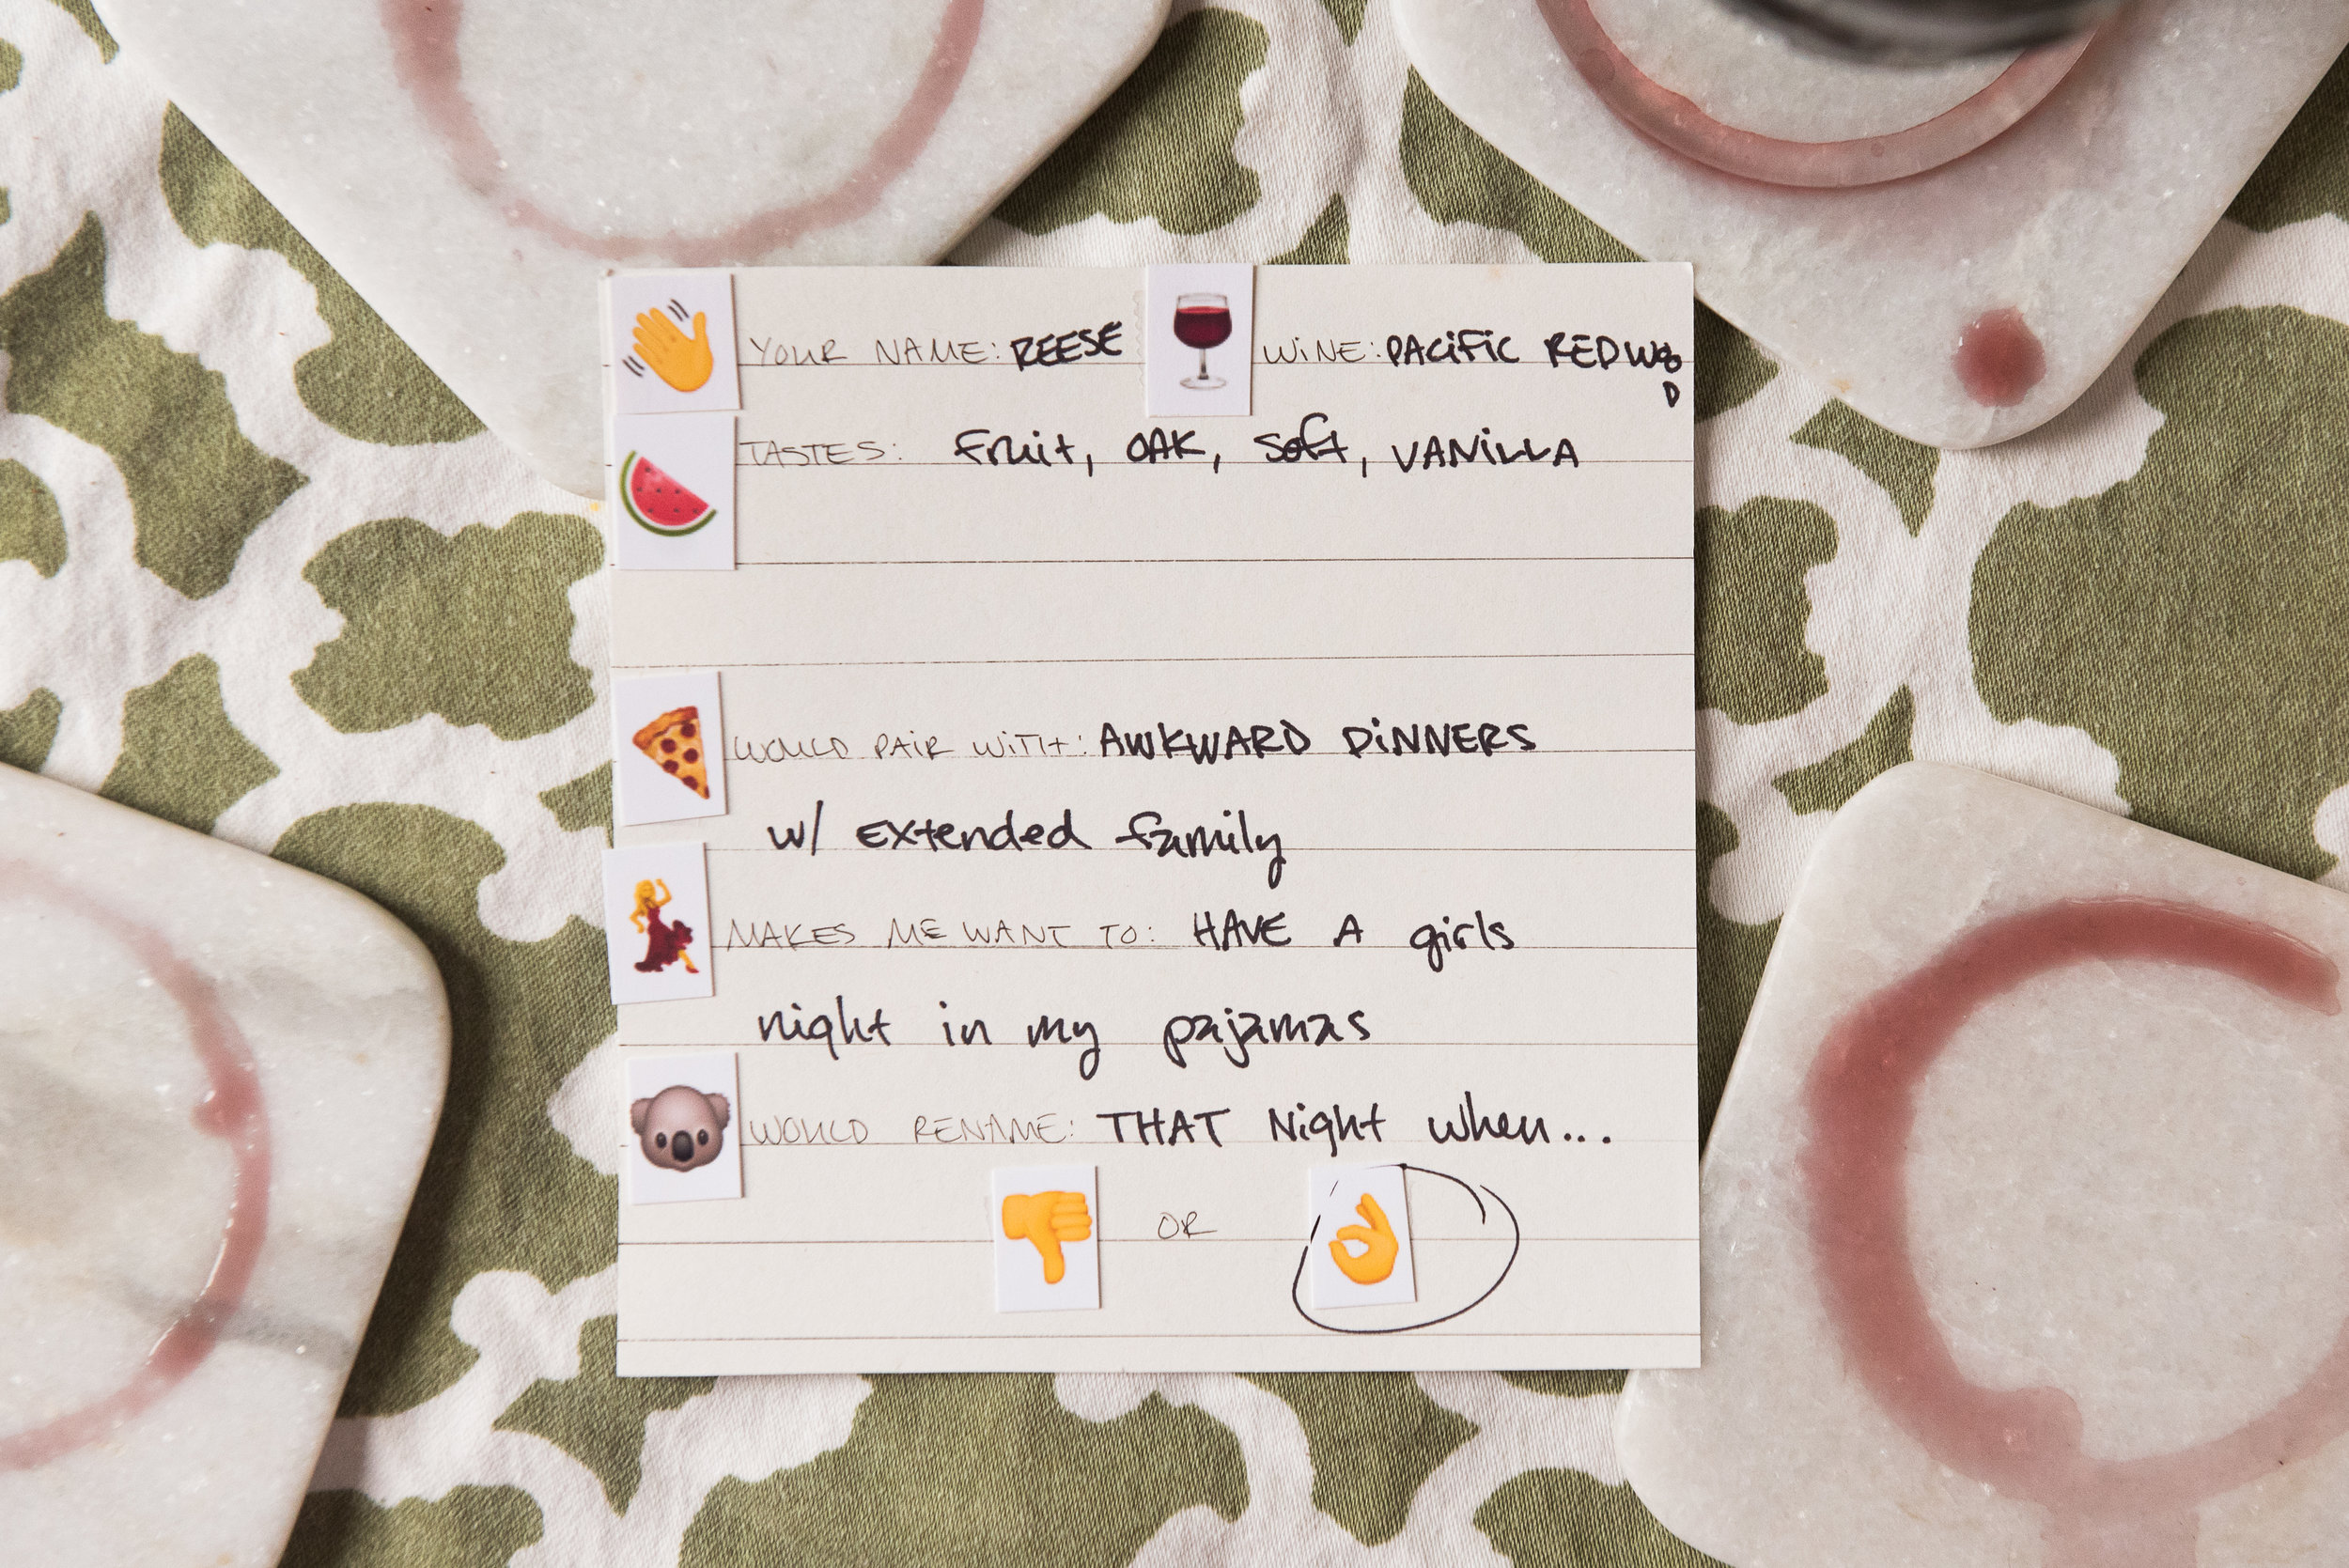 YOUR NAME: REESE WINE: PACIFIC REDWOOD
TASTES: fruit, OAK, soft, VANILLA
WOULD PAIR WITH: AWKWARD DINNERS
w/ extended family
MAKES ME WANT TO: HAVE A girls
night in my pajamas
WOULD RENAME: THAT Night when...
OR